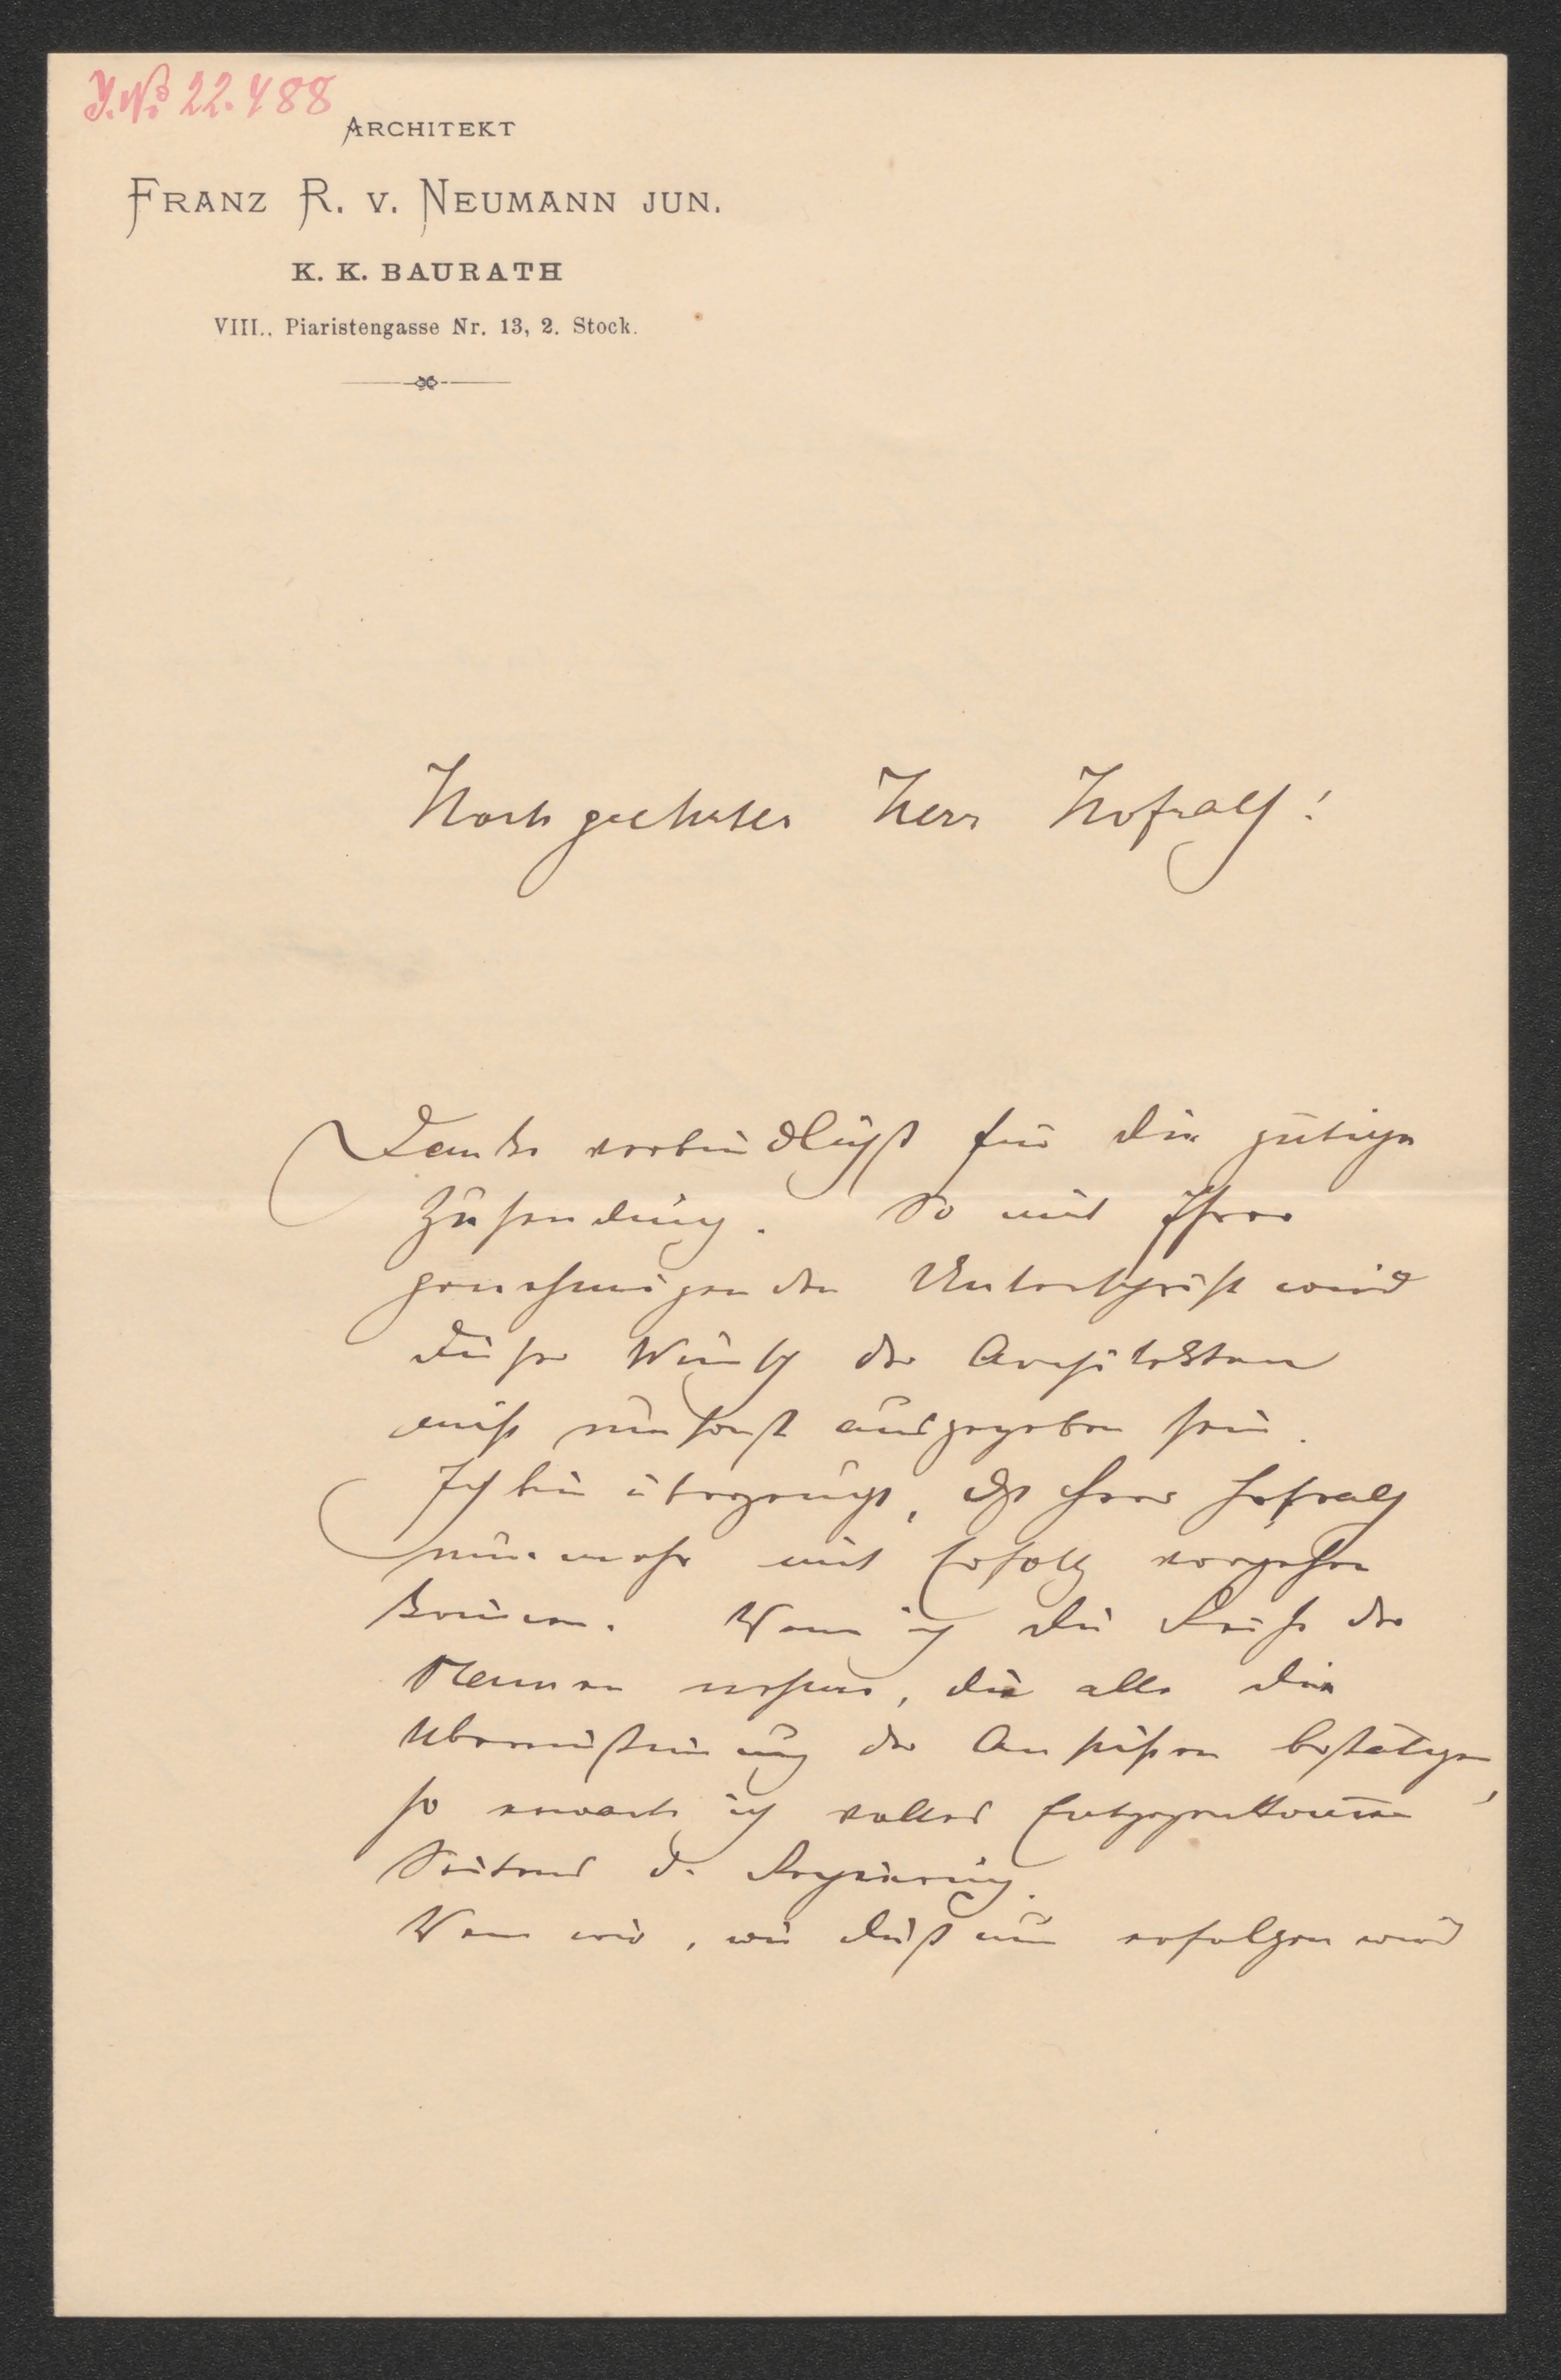 J. No 22.488
ARCHITEKT
FRANZ R. V. NEUMANN JUN.
K. K. BAURATH
VIII., Piaristengasse Nr. 13, 2. Stock.
Hochgeehrter Herr Hofrath!
Danke verbindlichst für die gütige
Zusendung. So mit Ihrer
genehmigenden Unterschrift wird
dieser Wunsch der Architekten
nicht umsonst ausgegeben sein.
Ich bin überzeugt, daß Herr Hofrath
nunmehr mit Erfolg vorgehen
können. Wenn ich die Reihe der
Namen ersehe, die alle die
Übereinstimmung der Ansichten bestätigen,
so erwarte ich volles Entgegenkommen
Seitens d. Regierung.
Wenn wir, wie dieß nun erfolgen wird